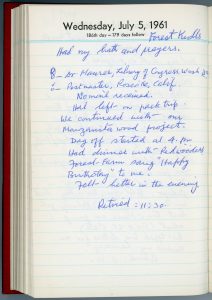 Wednesday, July 5, 1961
186th day — 179 days follow
Forest Knolls
Had my bath and prayers.
B – Dr Maurer, Library of Congress, Wash
L – Postmaster, Roseville, Calif.
No mail received.
Hal left on pack trip.
We continued with our
Manzanita wood project.
Day off started at 4. pm
Had dinner with Redwoods
Forest Farm sang "Happy
Birthday" to me.
Felt better in the evening
Retired = 11:30.